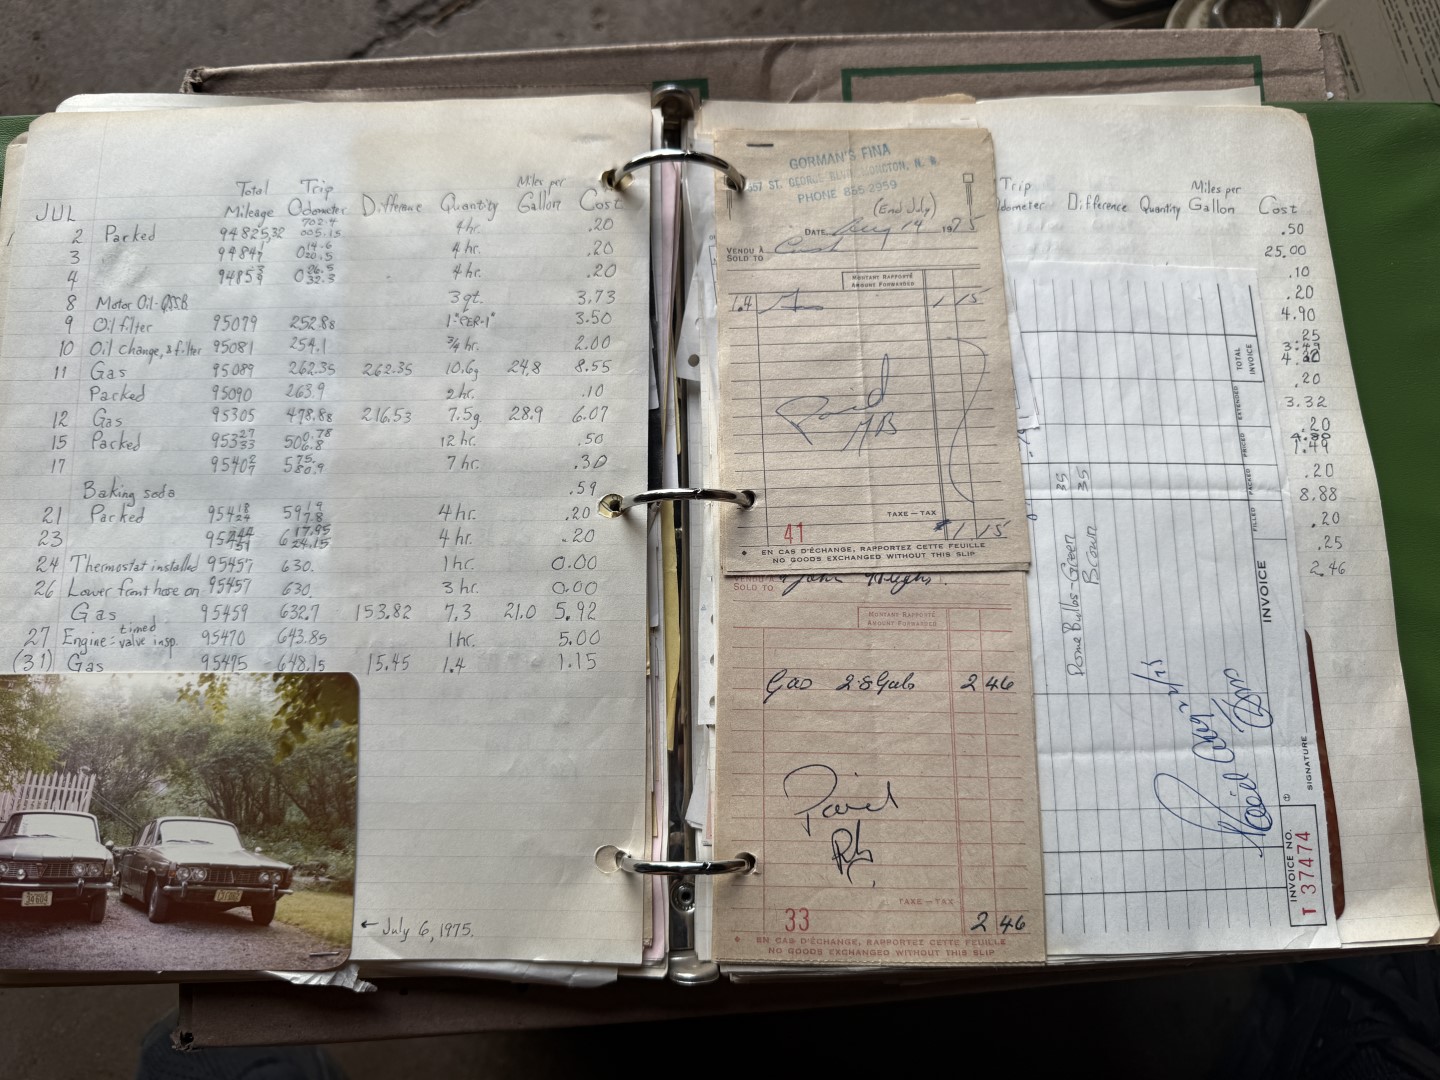 JUL Total Mileage Trip Odometer Difference Quantity Miles per Gallon Cost
2 Parked 94825,32 702.4 005.15 4hr. .20
3 4hr. .20
4 4hr. .20
8 Motor Oil 3qt. 3.73
9 Oil filter 95079 252.88 1 3.50
10 Oil change, & filter 95081 254.1 3/4 hr. 2.00
11 Gas 95089 262.35 262.35 10.6g 24.8 8.55
Parked 95090 263.9 2hr. .10
12 Gas 95305 478.88 216.53 7.5g 28.9 6.07
15 Parked 12 hr. .50
17 7 hr. .30
Baking soda .59
21 Parked 4hr. .20
23 4hr. .20
24 Thermostat installed 95457 630. 1hr. 0.00
26 Lower front hose on 95457 630. 3 hr. 0.00
Gas 95459 632.7 153.82 7.3 21.0 5.92
27 Engine: timed valve insp. 95470 643.85 1hr. 5.00
(31) Gas 95475 648.15 15.45 1.4 1.15
34 604
← July 6, 1975.
GORMAN'S FINA
PHONE 855-2959
(End July)
DATE Aug 14 1975
VENDU À
SOLD TO Cash
MONTANT RAPPORTÉ
AMOUNT FORWARDED
1.4 1 15
Paid
TAXE – TAX
41 1 15
EN CAS D'ÉCHANGE, RAPPORTEZ CETTE FEUILLE
NO GOODS EXCHANGED WITHOUT THIS SLIP
VENDU À
SOLD TO John
MONTANT RAPPORTÉ
AMOUNT FORWARDED
Gas 2.8 Gals 2 46
Paid
TAXE – TAX
33 2 46
EN CAS D'ÉCHANGE, RAPPORTEZ CETTE FEUILLE
NO GOODS EXCHANGED WITHOUT THIS SLIP
Trip Difference Quantity Miles per Gallon Cost
.50
25.00
.10
.20
4.90
.25
.20
3.32
.20
.20
8.88
.20
.25
2.46
Dome Bulbs - Green 35
Brown 35
INVOICE
TOTAL INVOICE
EXTENDED
PRICED
PACKED
FILLED
SIGNATURE
INVOICE NO.
T 37474